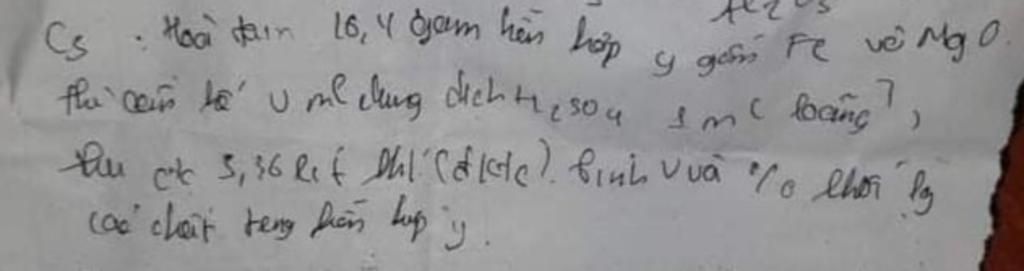 Al2O3
C5 . Hoà tan 16,4 gam hỗn hợp y gồm Fe và MgO.
thì cần tố V ml dung dịch H2SO4 1M (loãng),
thu đc 3,36 lít khí (đktc). Tính V và % khối lg
các chất trong hỗn hợp y.